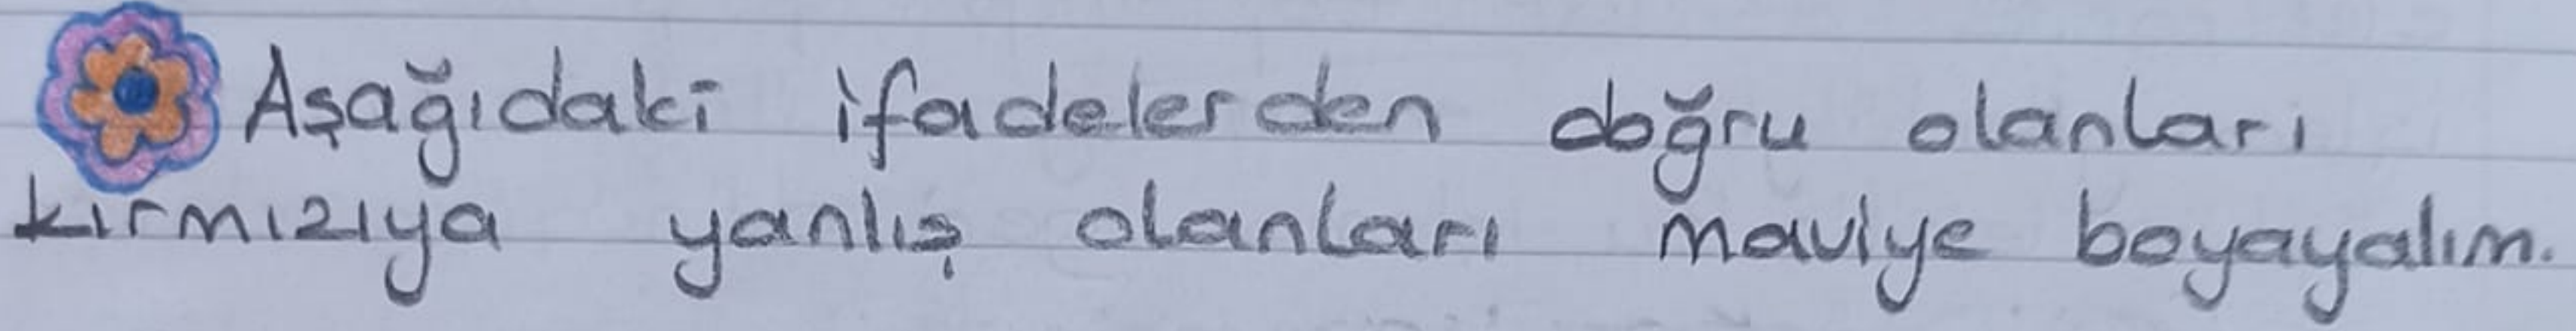 Aşağıdaki ifadelerden doğru olanları
kırmızıya yanlış olanları maviye boyayalım.